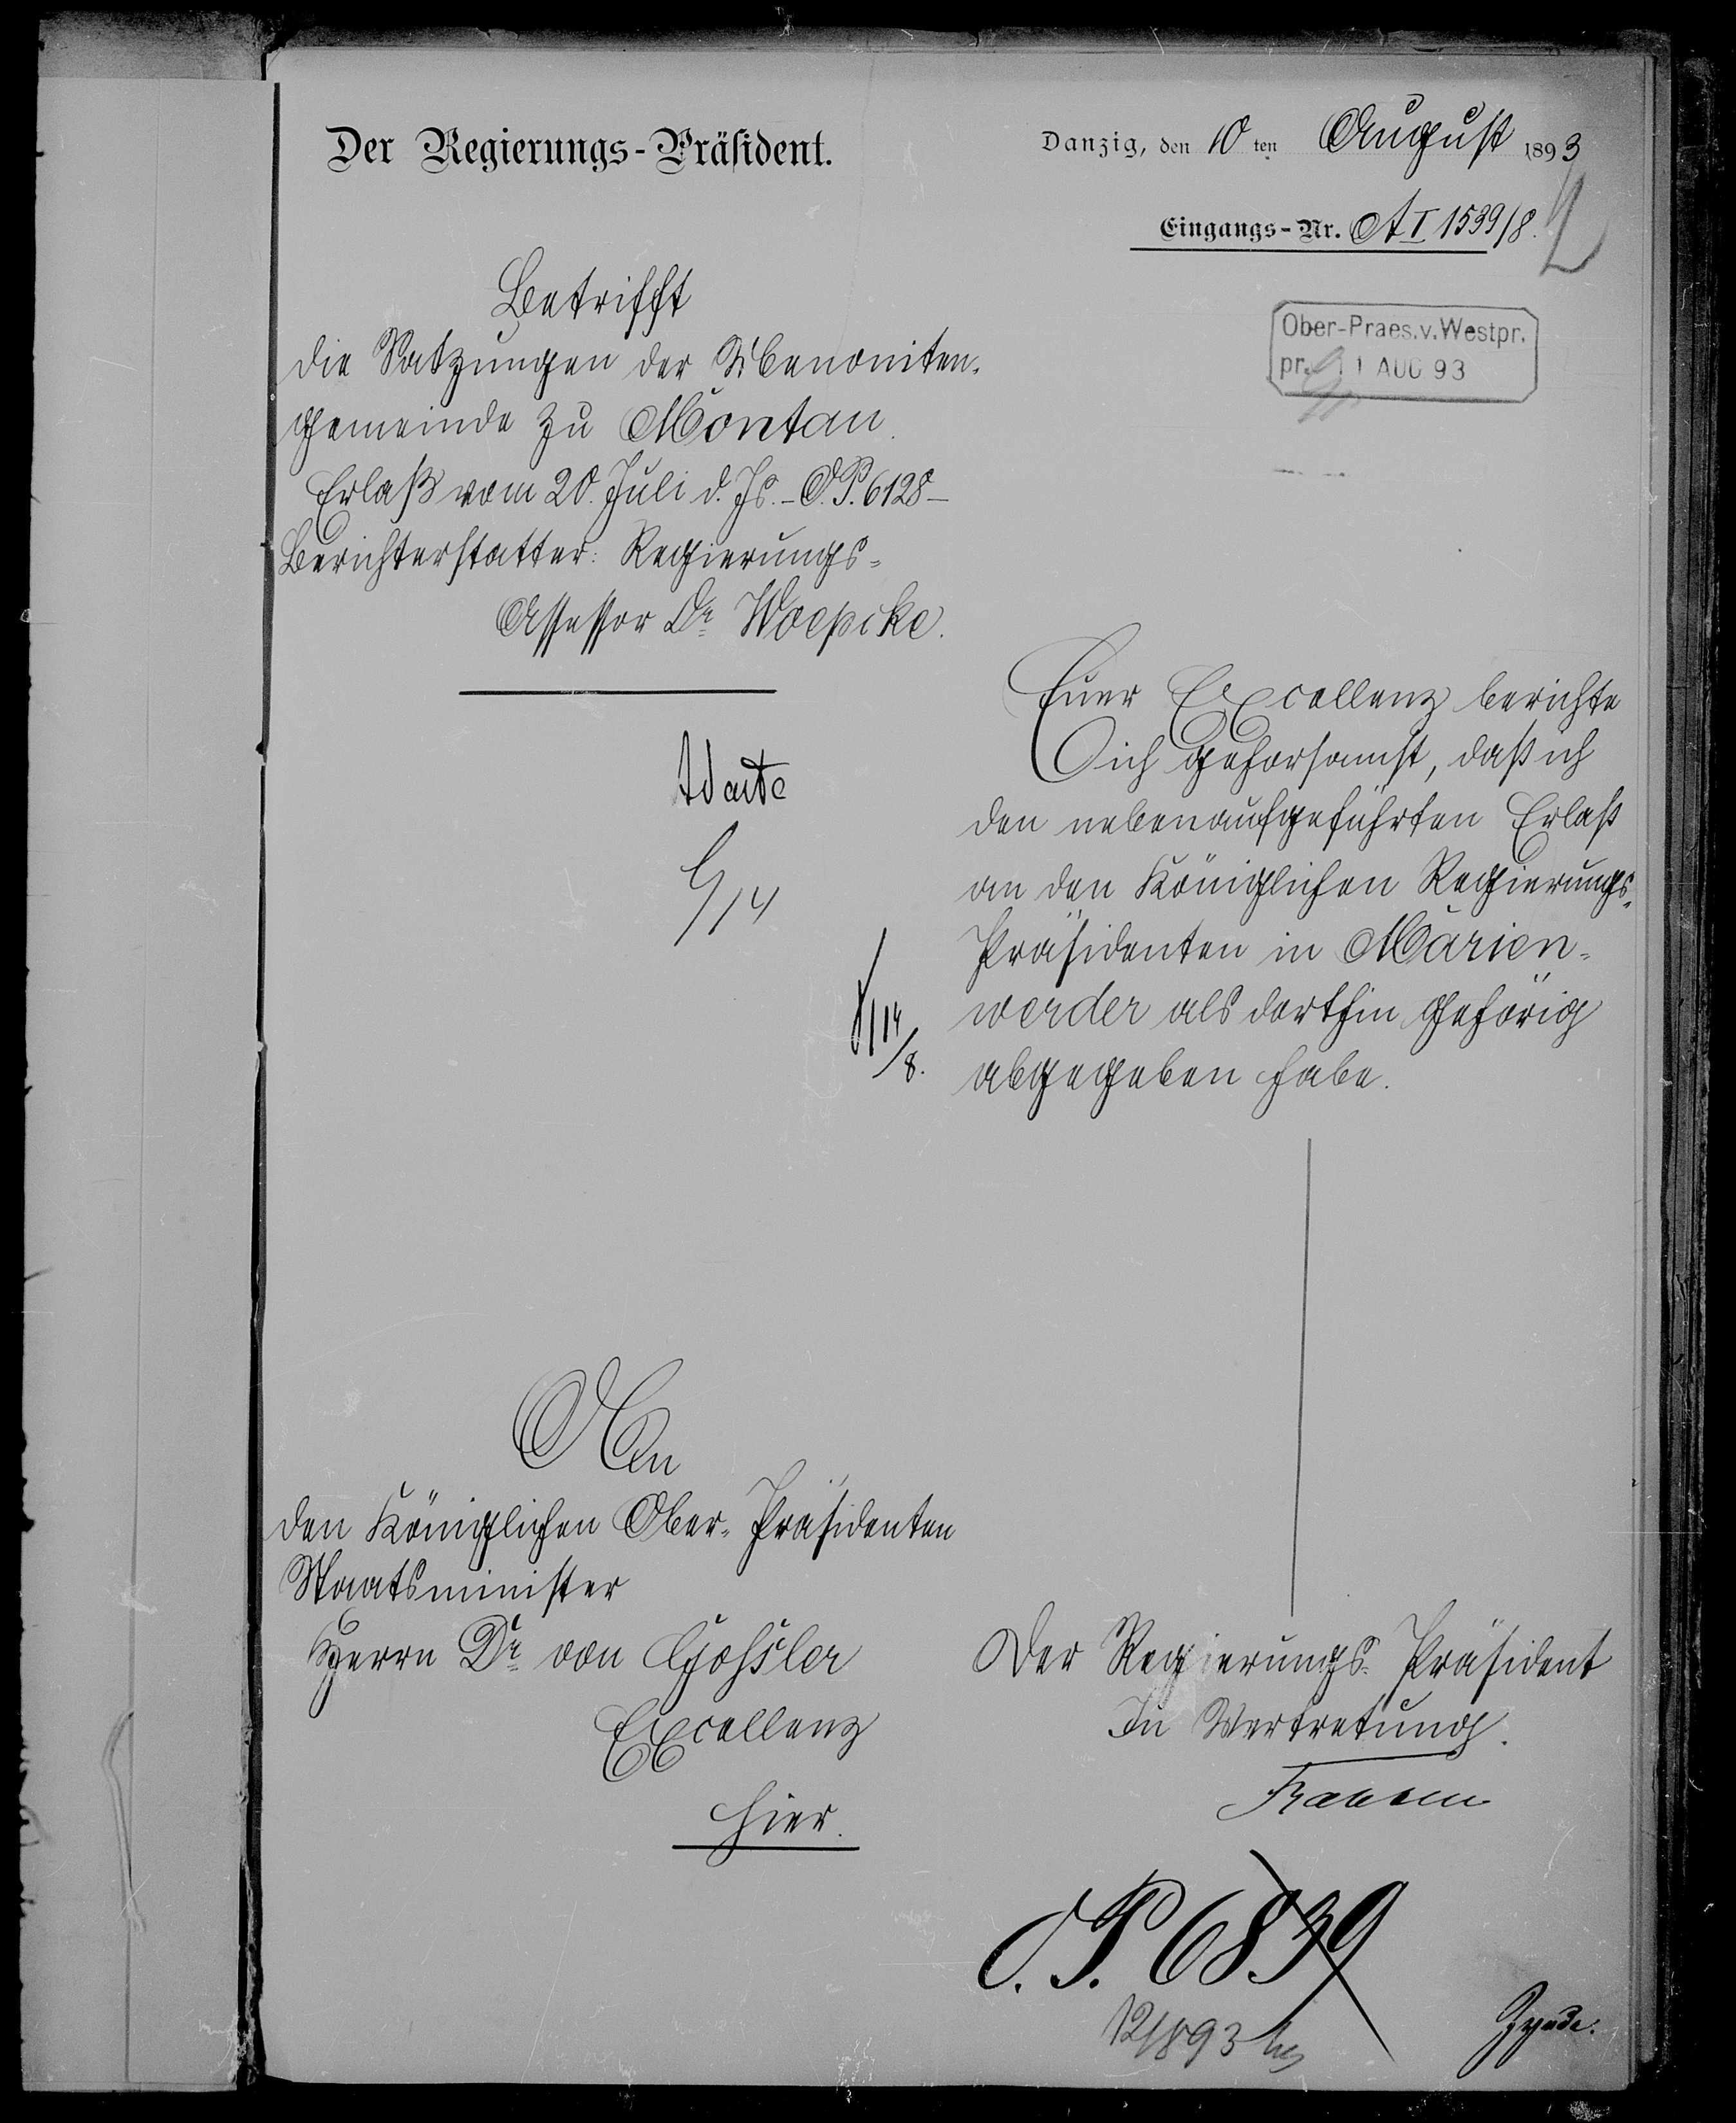 Der Regierungs-Präsident.
Danzig, den 10 ten August 1893
Eingangs-Nr. A I 1539/8.
2
Ober-Praes.v.Westpr.
pr. 11 AUG 93
Betrifft
die Satzungen der Menoniten-
gemeinde zu Montau.
Erlaß vom 20. Juli d. Js. - O.P. 6128 -
Berichterstatter: Regierungs-
Assessor Dr. Woepcke.
Euer Excellenz berichte
ich gehorsamst, daß ich
den nebenaufgeführten Erlaß
an den Königlichen Regierungs-
Präsidenten in Marien-
werder als dorthin gehörig
abgegeben habe.
G/14
14/8.
An
den Königlichen Ober-Präsidenten
Staatsminister
Herrn Dr. von Goßler
Excellenz
hier.
Der Regierungs-Präsident
In Vertretung.
O.P. 6839
12/893